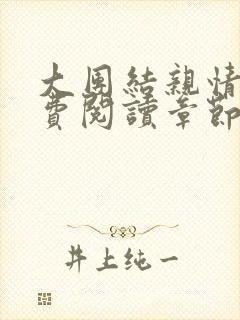 大團結親情
費閱讀章節
井上纯一